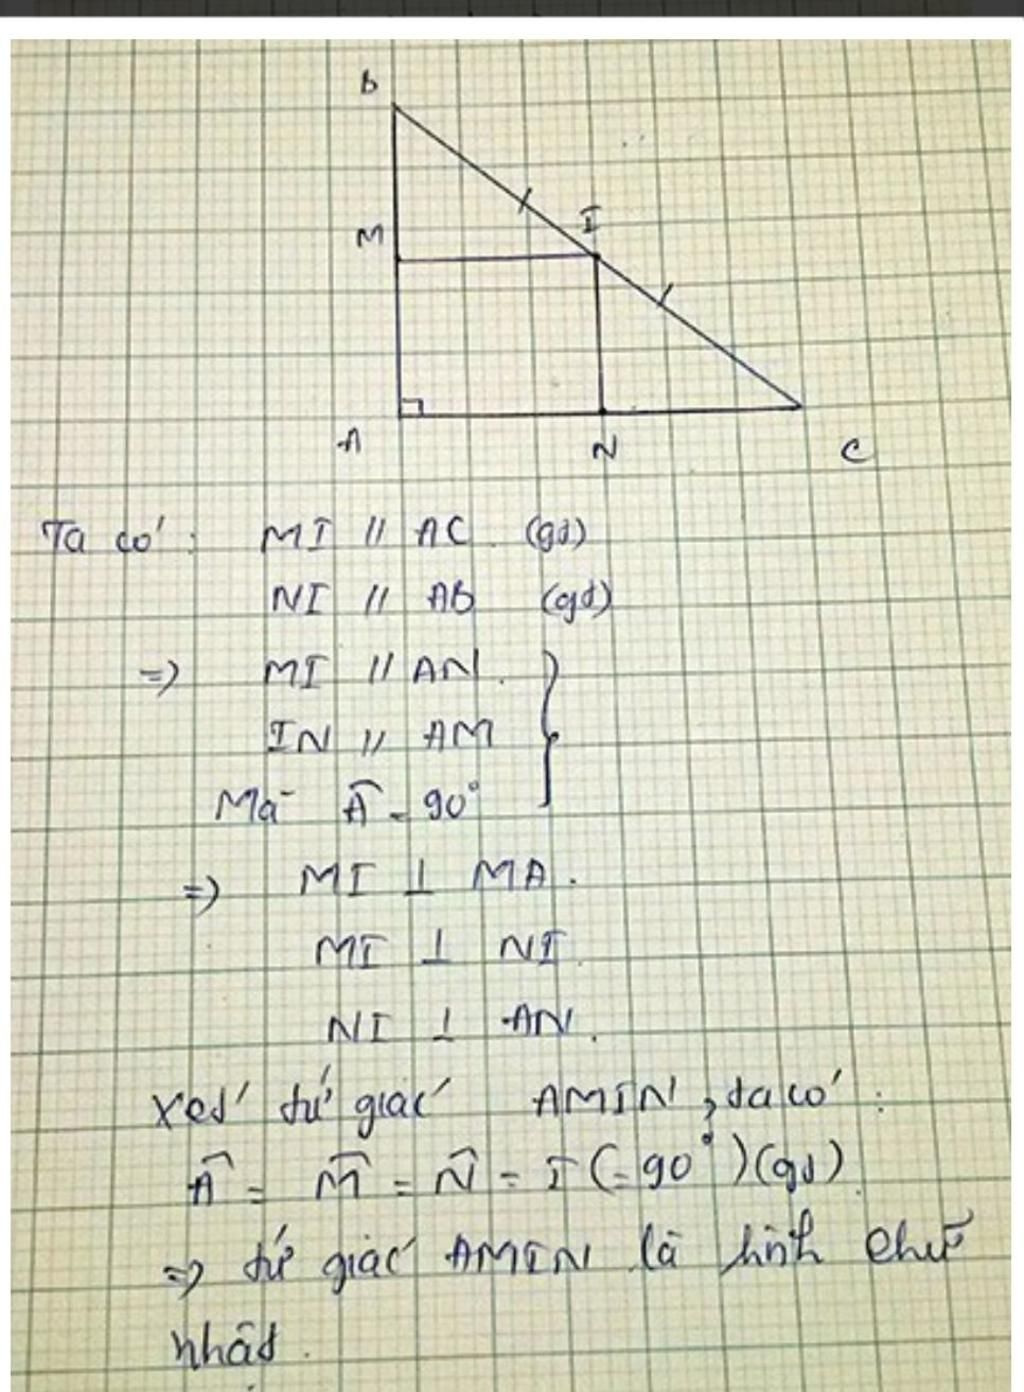 B
I
M
A
N
C
Ta có: MI // AC. (gt)
NI // AB (gt)
=> MI // AN.
IN // AM
Mà Â = 90°
=> MI ⊥ MA.
MI ⊥ NI.
NI ⊥ AN.
Xét tứ giác AMIN, ta có:
Â = M̂ = N̂ = I (= 90°) (gt)
=> tứ giác AMIN là hình chữ
nhật.